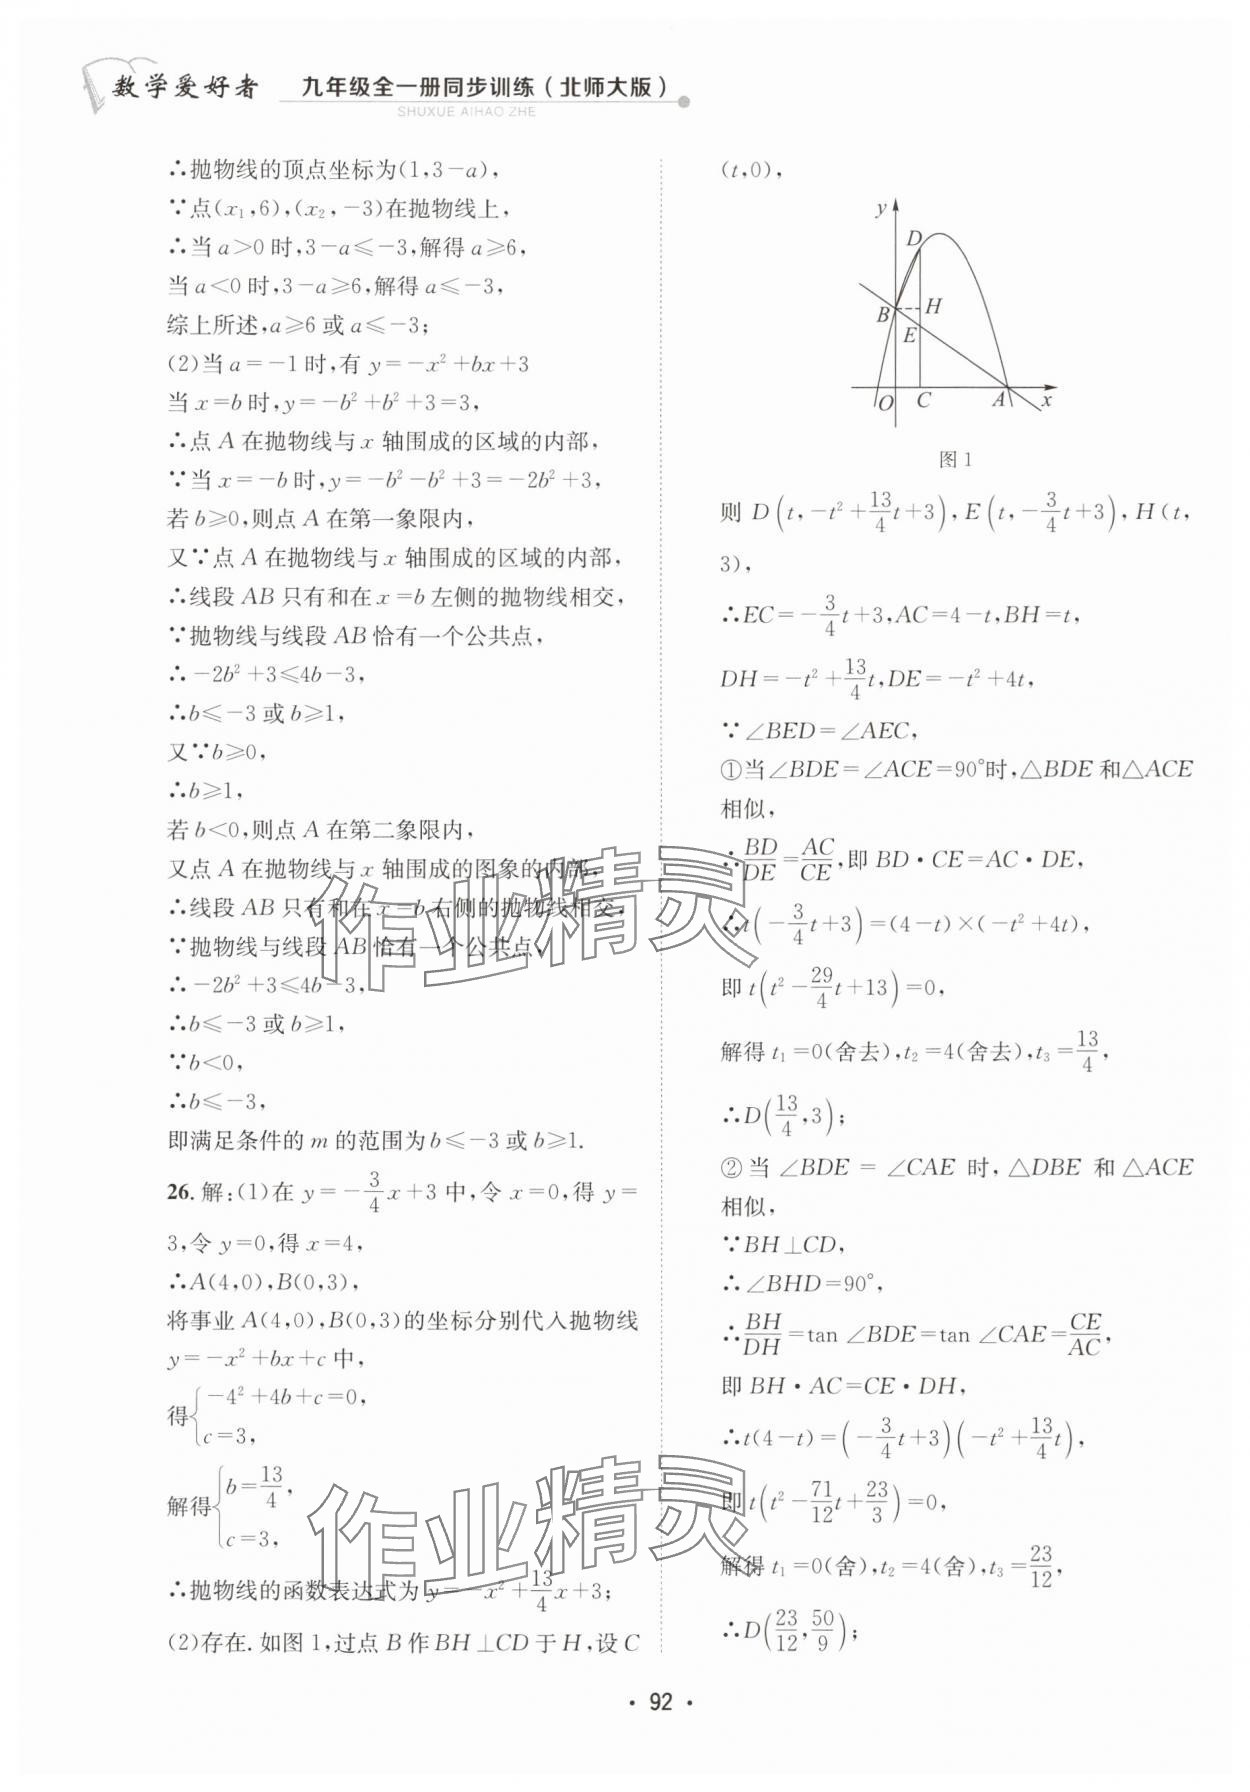 数学爱好者 九年级全一册同步训练(北师大版)
SHUXUE AIHAO ZHE
∴抛物线的顶点坐标为(1,3-a),
∵点(x₁,6),(x₂,-3)在抛物线上,
∴当 a>0 时,3-a≤-3,解得 a≥6,
当 a<0 时,3-a≥6,解得 a≤-3,
综上所述,a≥6 或 a≤-3;
(2)当 a=-1 时,有 y=-x²+bx+3
当 x=b 时,y=-b²+b²+3=3,
∴点 A 在抛物线与 x 轴围成的区域的内部,
∵当 x=-b 时,y=-b²-b²+3=-2b²+3,
若 b≥0,则点 A 在第一象限内,
又∵点 A 在抛物线与 x 轴围成的区域的内部,
∴线段 AB 只有和在 x=b 左侧的抛物线相交,
∵抛物线与线段 AB 恰有一个公共点,
∴-2b²+3≤4b-3,
∴b≤-3 或 b≥1,
又∵b≥0,
∴b≥1,
若 b<0,则点 A 在第二象限内,
又点 A 在抛物线与 x 轴围成的图象的内部,
∴线段 AB 只有和在 x=b 右侧的抛物线相交,
∵抛物线与线段 AB 恰有一个公共点,
∴-2b²+3≤4b-3,
∴b≤-3 或 b≥1,
∵b<0,
∴b≤-3,
即满足条件的 m 的范围为 b≤-3 或 b≥1.
26. 解:(1)在 y=-3/4x+3 中,令 x=0,得 y=
3,令 y=0,得 x=4,
∴A(4,0),B(0,3),
将事业 A(4,0),B(0,3)的坐标分别代入抛物线
y=-x²+bx+c 中,
得{-4²+4b+c=0,
c=3,
解得{b=13/4,
c=3,
∴抛物线的函数表达式为 y=-x²+13/4x+3;
(2)存在.如图 1,过点 B 作 BH⊥CD 于 H,设 C
(t,0),
y
D
B
H
E
O
C
A
x
图 1
则 D(t,-t²+13/4t+3),E(t,-3/4t+3),H(t,
3),
∴EC=-3/4t+3,AC=4-t,BH=t,
DH=-t²+13/4t,DE=-t²+4t,
∵∠BED=∠AEC,
①当∠BDE=∠ACE=90°时,△BDE 和△ACE
相似,
∴BD/DE=AC/CE,即 BD·CE=AC·DE,
∴t(-3/4t+3)=(4-t)×(-t²+4t),
即 t(t²-29/4t+13)=0,
解得 t₁=0(舍去),t₂=4(舍去),t₃=13/4,
∴D(13/4,3);
②当∠BDE=∠CAE 时,△DBE 和△ACE
相似,
∵BH⊥CD,
∴∠BHD=90°,
∴BH/DH=tan∠BDE=tan∠CAE=CE/AC,
即 BH·AC=CE·DH,
∴t(4-t)=(-3/4t+3)(-t²+13/4t),
即 t(t²-71/12t+23/3)=0,
解得 t₁=0(舍),t₂=4(舍),t₃=23/12,
∴D(23/12,50/9);
作业精灵
作业精灵
·92·